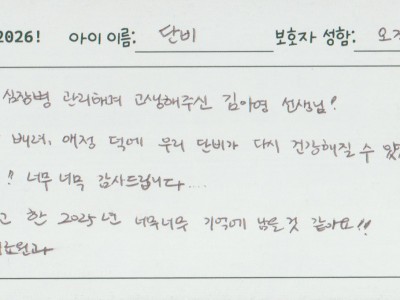 2026! 아이 이름: 단비 보호자 성함: 오
심장병 관리하며 고생해주신 김아영 선생님!
배려, 애정 덕에 우리 단비가 다시 건강해질 수 있
!! 너무너무 감사드립니다....
고 한 2025년 너무너무 기억에 남을것 같아요!!